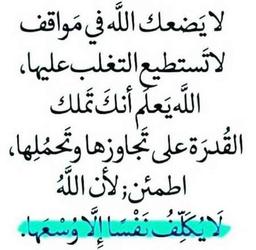 لا يَضعك اللَّه في مَواقف
لا تَستطيع التغلب عليها،
اللَّه يَعلَم أنكَ تَملك
القُدرَة على تَجاوزها وتَحمُلِها،
اطمئن; لأن اللَّهُ
لَا يُكَلِّفُ نَفْسًا إِلَّا وُسْعَهَا.